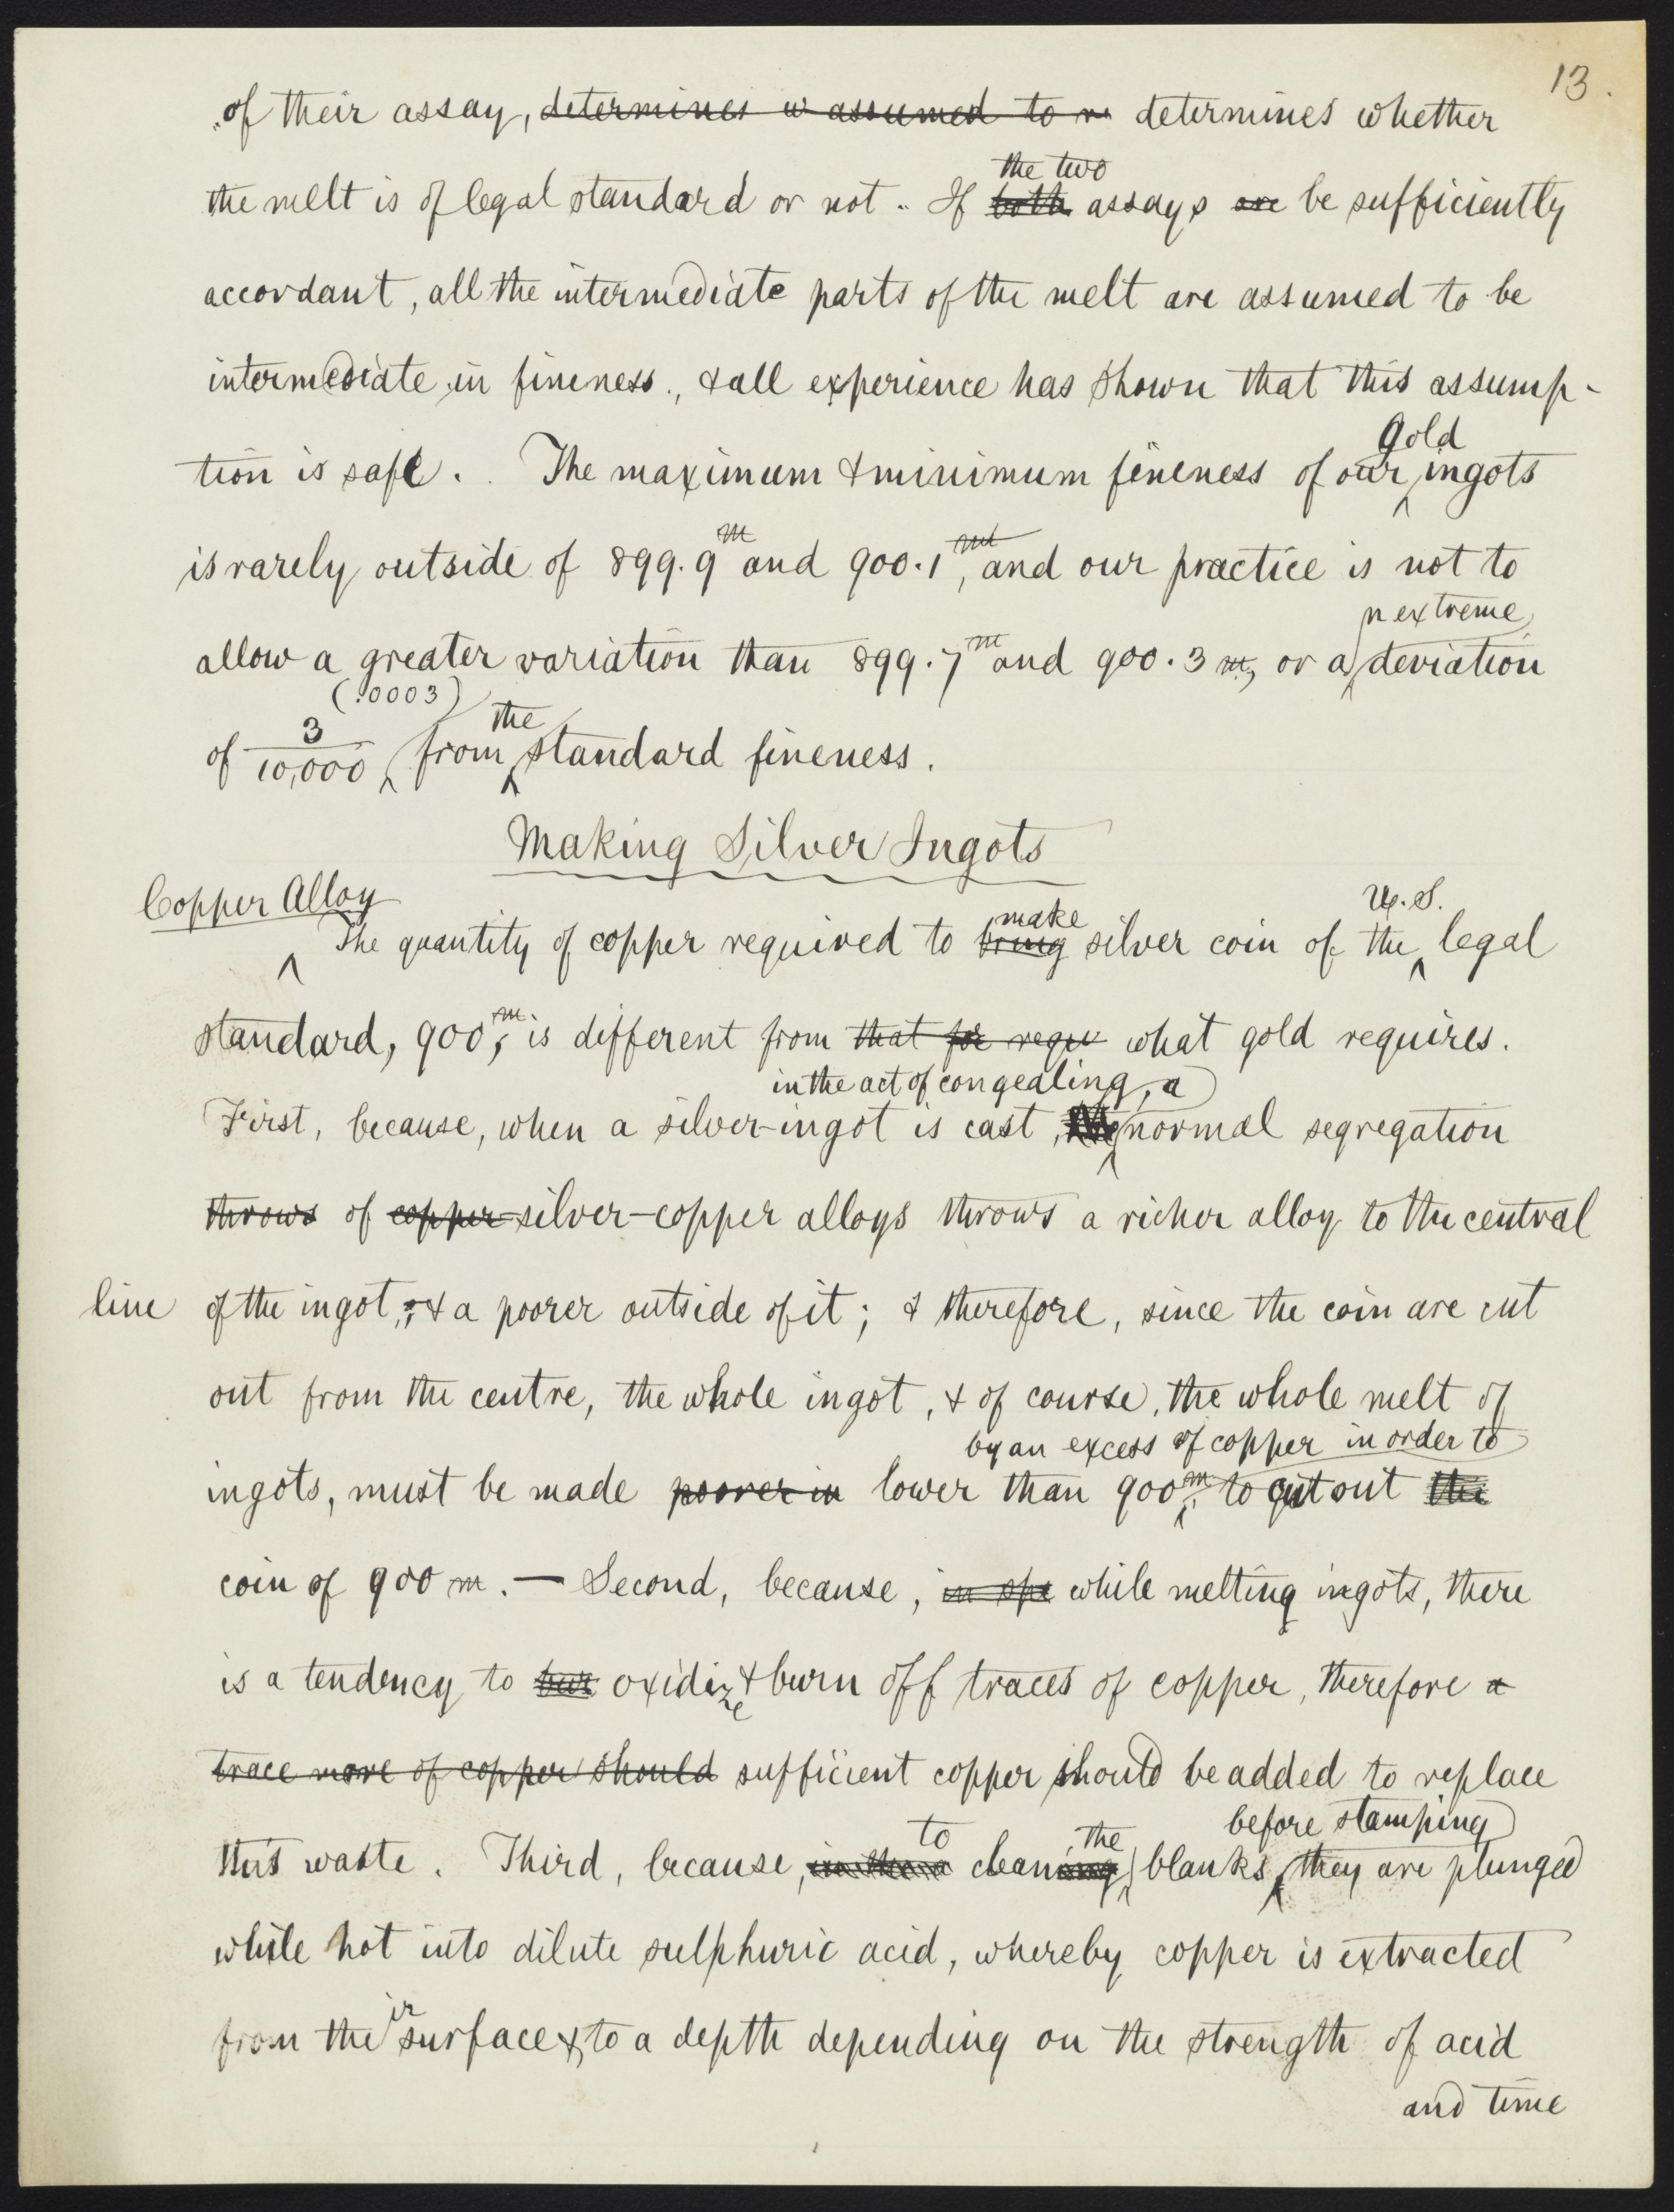 13.
of their assay, determines w assumed to determines whether
the two
the melt is of legal standard or not. If both assays are be sufficiently
accordant, all the intermediate parts of the melt are assumed to be
intermediate in fineness., & all experience has shown that this assump-
gold
tion is safe. The maximum & minimum fineness of our ingots
is rarely outside of 899.9 m and 900.1, and our practice is not to
n extreme
allow a greater variation than 899.7 m and 900.3 m, or a deviation
(.0003) the
of 3/10,000 from standard fineness.
Making Silver Ingots
Copper Alloy
make U.S.
The quantity of copper required to bring silver coin of the legal
standard, 900 m, is different from that for requ what gold requires.
in the act of congealing, a
First, because, when a silver-ingot is cast, normal segregation
throws of copper-silver-copper alloys throws a richer alloy to the central
line of the ingot, & a poorer outside of it; & therefore, since the coin are cut
out from the centre, the whole ingot, & of course, the whole melt of
by an excess of copper in order to
ingots, must be made poorer in lower than 900 m. to cut out the
coin of 900 m. — Second, because, in spe while melting ingots, there
is a tendency to bur oxidize & burn off traces of copper, therefore a
trace more of copper should sufficient copper should be added to replace
to the before stamping
this waste. Third, because, cleaning blanks, they are plunged
while hot into dilute sulphuric acid, whereby copper is extracted
ir
from the surface & to a depth depending on the strength of acid
and time